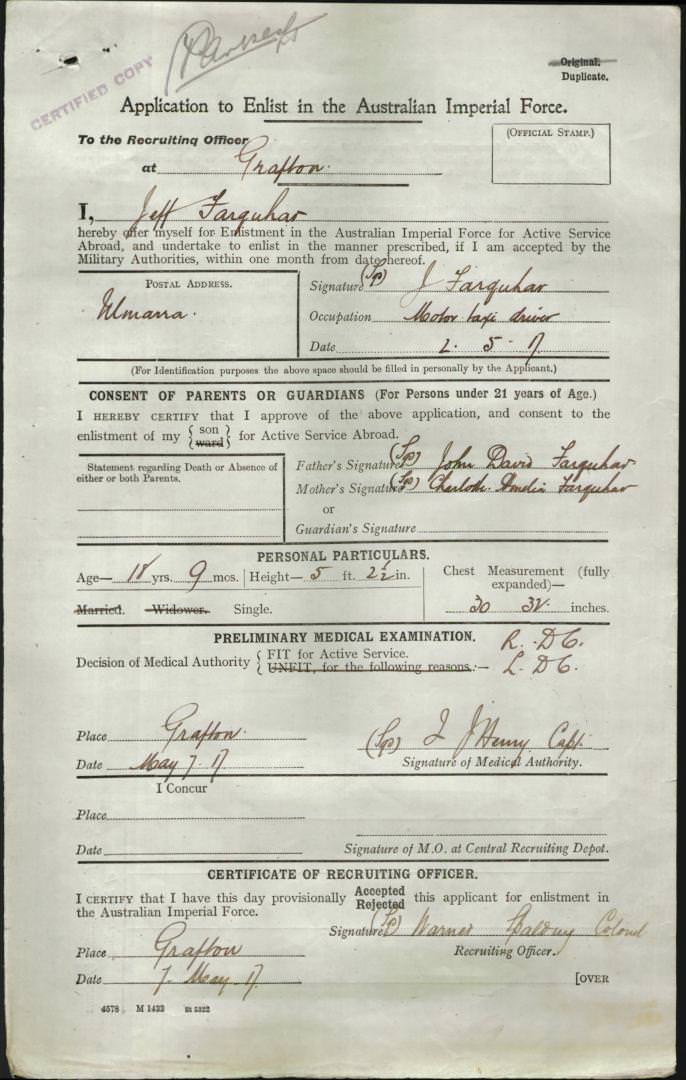 CERTIFIED COPY
Original.
Duplicate.
Application to Enlist in the Australian Imperial Force.
To the Recruiting Officer
at Grafton.
(OFFICIAL STAMP.)
I, Jeff Farquhar
hereby offer myself for Enlistment in the Australian Imperial Force for Active Service
Abroad, and undertake to enlist in the manner prescribed, if I am accepted by the
Military Authorities, within one month from date hereof.
POSTAL ADDRESS.
Ulmarra.
Signature (Sgd) J Farquhar
Occupation Motor taxi driver
Date 2. 5. 17
(For Identification purposes the above space should be filled in personally by the Applicant.)
CONSENT OF PARENTS OR GUARDIANS (For Persons under 21 years of Age.)
I HEREBY CERTIFY that I approve of the above application, and consent to the
enlistment of my { son ward } for Active Service Abroad.
Statement regarding Death or Absence of
either or both Parents.
Father's Signature (Sgd) John David Farquhar
Mother's Signature (Sgd) Charlotte Amelia Farquhar
or
Guardian's Signature
PERSONAL PARTICULARS.
Age— 18 yrs. 9 mos. Height— 5 ft. 2½ in.
Chest Measurement (fully
expanded)—
30 32 inches.
Married. Widower. Single.
PRELIMINARY MEDICAL EXAMINATION.
R. D6.
L. D6.
Decision of Medical Authority { FIT for Active Service.
UNFIT, for the following reasons.:—
Place Grafton.
Date May 7. 17
(Sgd) J Henry Capt.
Signature of Medical Authority.
I Concur
Place
Date
Signature of M.O. at Central Recruiting Depot.
CERTIFICATE OF RECRUITING OFFICER.
I CERTIFY that I have this day provisionally Accepted Rejected this applicant for enlistment in
the Australian Imperial Force.
Signature (Sgd) Warner Spalding Colonel
Recruiting Officer.
Place Grafton
Date 7. May. 17.
[OVER
4578 M 1422